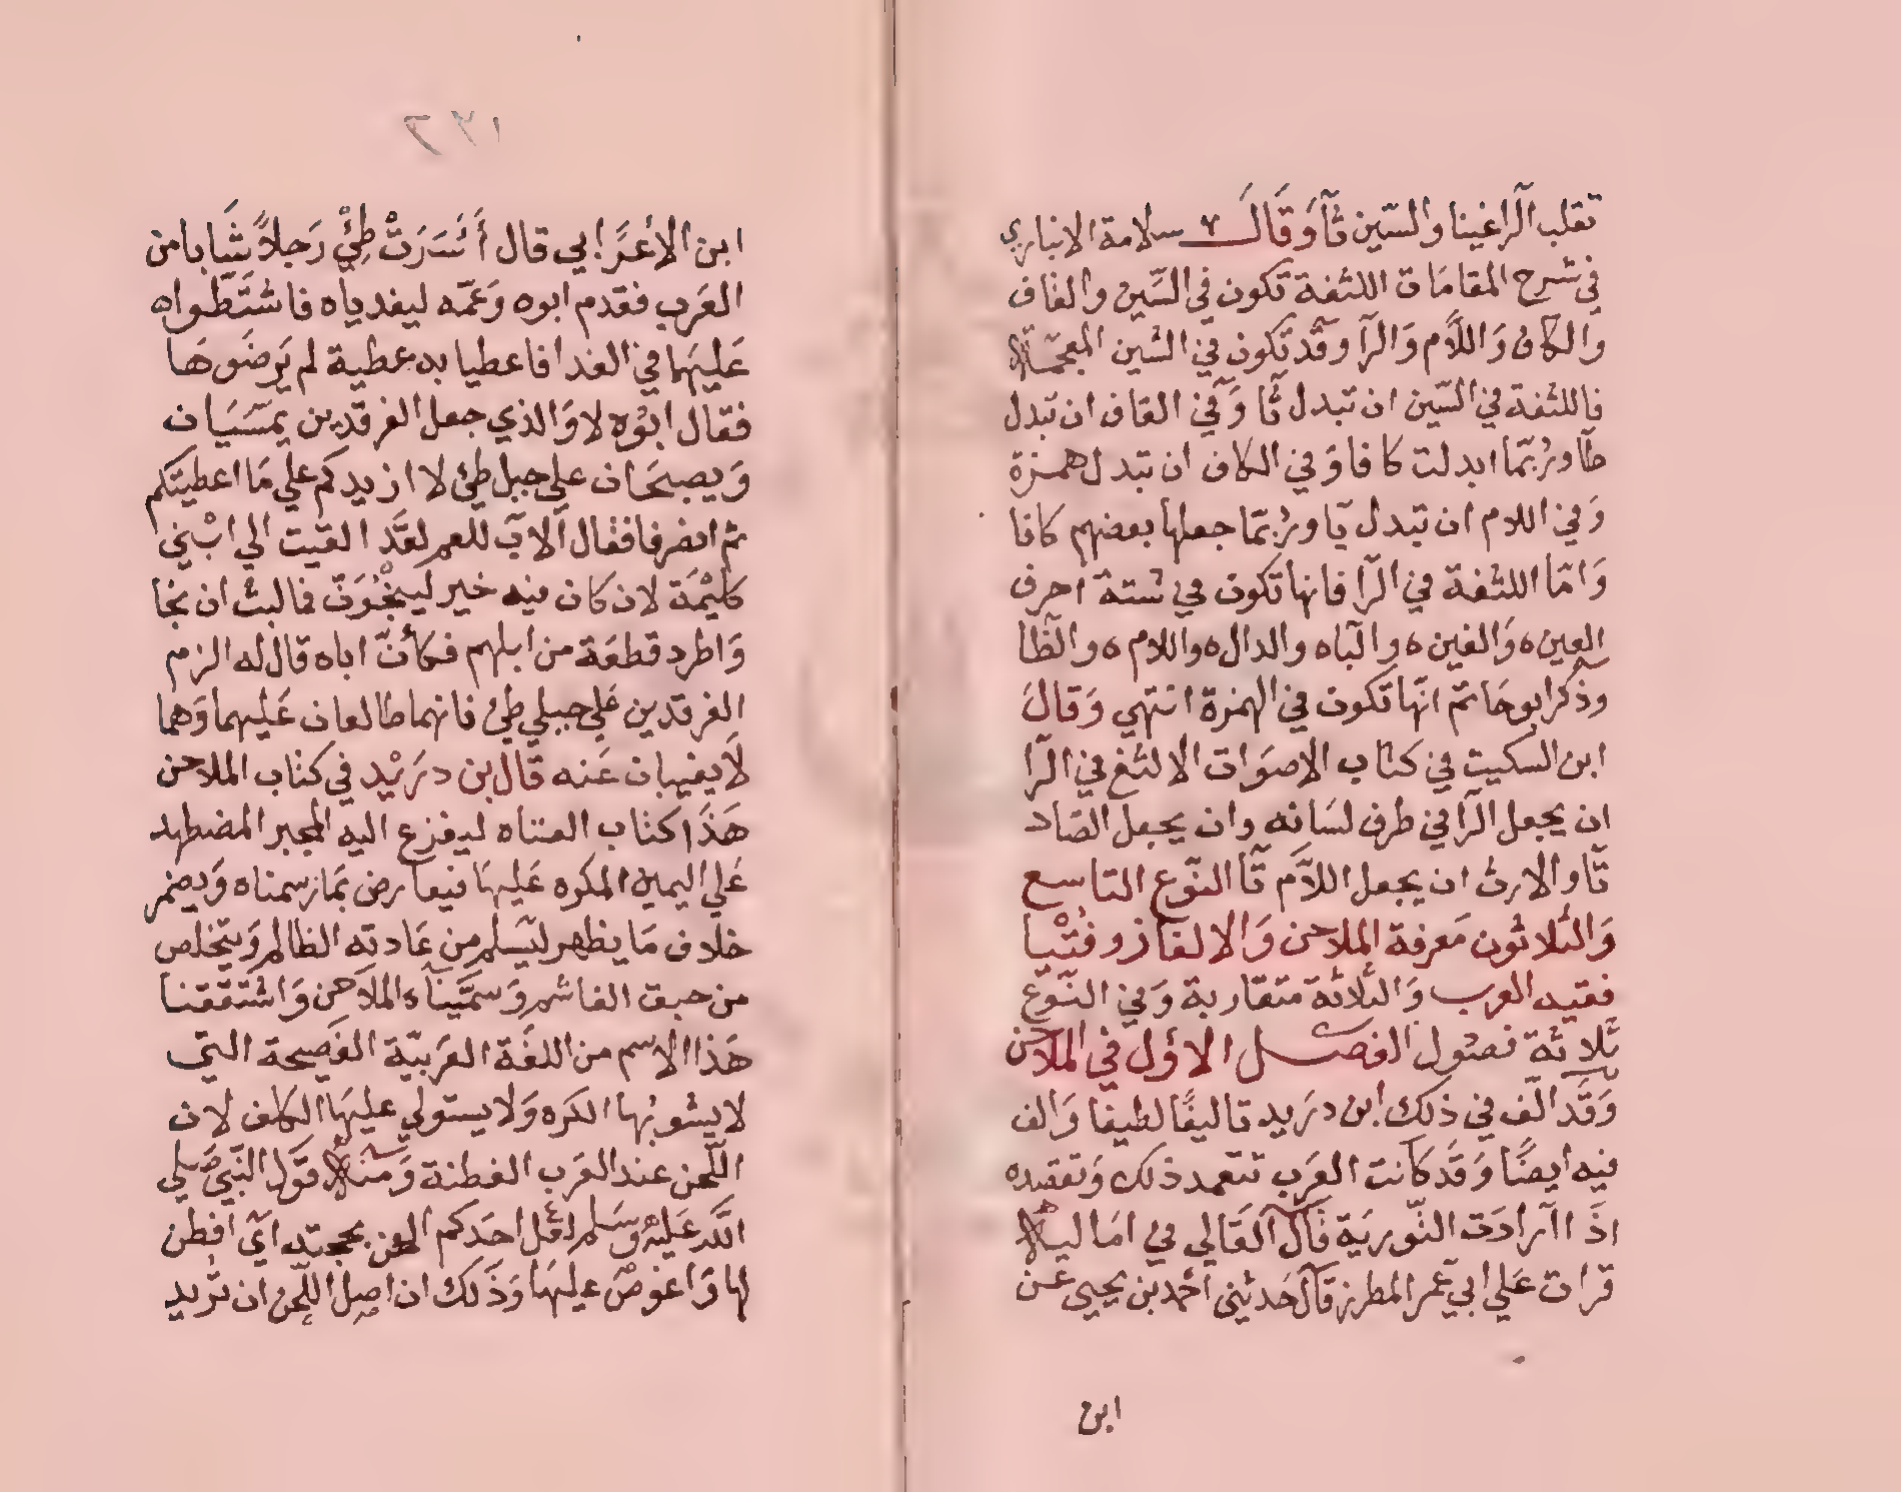 تقلب الرا غينا والسّين ثآ وَقَالَ سلامة الانباري
في شرح المقامَات اللثغة تكون في السّين والقاف
والكاف وَاللّام وَالرآ وقد تكون في الشين المعجمة
فاللثغة في السّين ان تبدل ثا وَفي القاف ان تبدل
طا ورُبّما ابدلت كافا وَفي الكاف ان تبدل همزة
وَفي اللام ان تبدل يآ ورُبّما جعلها بعضهم كافا
وَامّا اللثغة في الرآ فانها تكون في ستة احرف
العين ه وَالغين ه واليا ه والدال ه واللام ه والظا
وذكر ابو حَاتم انّها تكون في الهمزة انتهي وَقالَ
ابن السكيت في كتاب الاصوَات الالثغ في الرّا
ان يجعل الرآ في طرف لسَانه وان يجعل الصّاد
ثآ والارث ان يجعل اللّام تآ النّوع التاسع
وَالثلاثون مَعرفة الملاحن وَالالغاز وفُتْيا
فقيه العرب وَالثّلاثة متقاربة وَفي النّوع
ثلاثة فصُول الفصل الاوّل في الملاحن
وَقَد الّف في ذلك ابن دريد تاليفًا لطيفا وَالف
فيه ايضًا وَقَد كَانت العَرَب تتعمد ذلك وَتقصده
اذَا ارادَت التّوريَة قَالَ القَالي في امَاليه
قرات عَلي ابي عمر المطرز قالَ حَدثني احمد بن يحيى عن
ابن
١٣٢
ابن الاعرَابي قال أَسَرَتْ طَئْ رَجلاً شَابا من
العَرب فقدم ابوه وَعَمّه ليفدياه فاشتَطّوا
عَليهَما في الفدا فاعطيا به عطية لم يَرضَوهَا
فقال ابُوه لا وَالذي جعل الفرقدين يمسَيَان
وَيصبحَان علي جبل طئ لا ازيدكم علي مَا اعطيتكم
ثم انصرفا فقال الاب للعم لقَد القيت الي ابْني
كليْمَة لان كان فيه خير لينْجُوَنّ فما لبث ان نجا
وَاطرد قطعَة من ابلهم فكأنّ اباه قال له الزم
الفرقدين عَلي جبلي طئ فانهما طالعان عَليهما وَهما
لَا يغيبان عَنه قال بن دريْد في كتاب الملاحن
هَذَا كتاب الفناه ليفزع اليه المجبر المضطهد
عَلي اليمين المكره عَليهَا فيعارض بمَا رسمناه وَيضمر
خلاف مَا يظهر ليَسلم من عَادته الظالم وَيتخلص
من حيف الغاشم وَسمّيَناه الملَاحن وَاشتققنا
هَذا الاسم من اللغَة العَربيّة الفَصِيحة التي
لا يشوبها الكره وَلا يستولي عليهَا الكلف لان
اللّحن عند العَرب الفطنة وَمنه قَول النّبيّ صَلي
اللّه عَليْه وسَلم لعَل احَدكم الحن بحجته اي افطن
لها وَاغوصُ عليهَا وَذَلك ان اصل اللّحن ان تريد